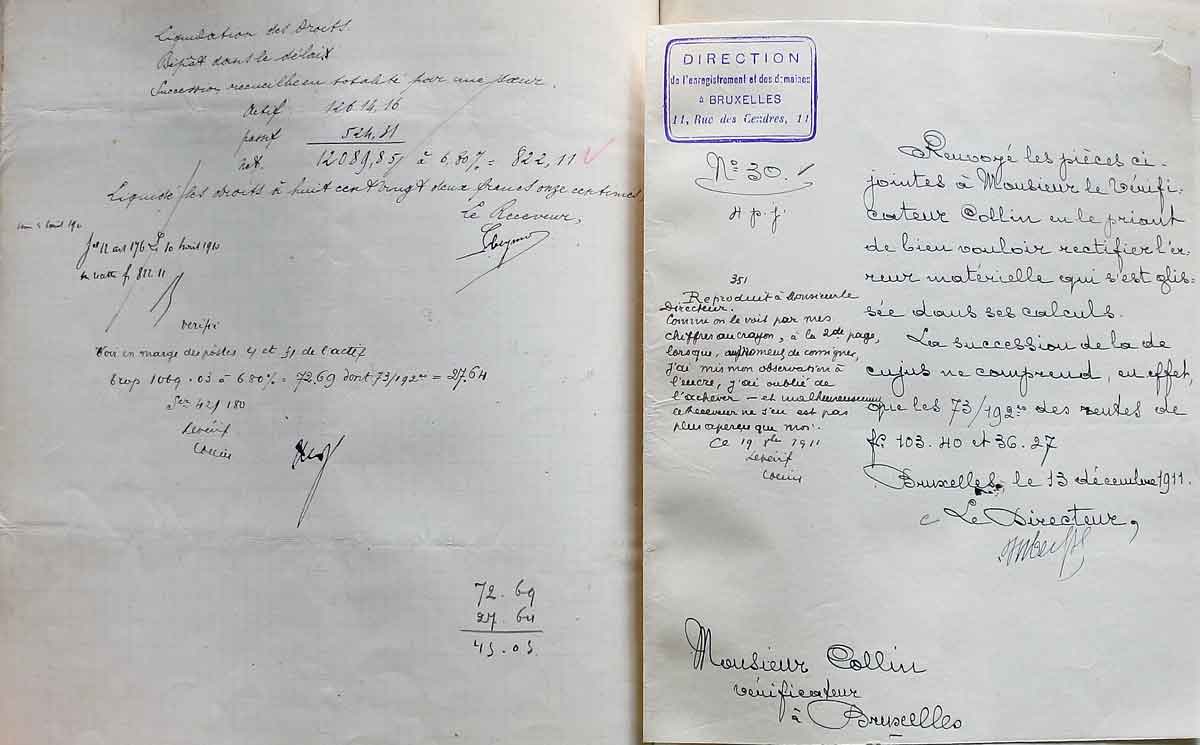 Liquidation des Droits.
Dépôt dans le délai
Succession recueillie en totalité pour une sœur.
Actif 12614.16
passif 524.31
Net 12089,85 à 6,80% = 822,11
Liquidé les droits à huit cent vingt deux francs onze centimes
Le Receveur,
176 10 avril 1910
822.11
Vérifié
Voir en marge des postes 4 et 51 de l'actif
trop 1069.03 à 6 80% = 72,69 dont 73/192es = 27.64
421 180
Le vérif
Collin
72.69
27.64
45.05
DIRECTION
de l'enregistrement et des domaines
à BRUXELLES
11, Rue des Cendres, 11
N° 30.
4 p. j.
351
Reproduit à Monsieur le
Directeur.
Comme on le voit par mes
chiffres au crayon, à la 2de page,
lorsque, au moment de consigner,
j'ai mis mon observation à
l'encre, j'ai oublié de
l'achever – et malheureusement
le receveur ne s'en est pas
plus aperçu que moi.
Ce 19 Xbre 1911
Le vérif
Collin
Renvoyé les pièces ci-
jointes à Monsieur le Vérifi-
cateur Collin en le priant
de bien vouloir rectifier l'er-
reur matérielle qui s'est glis-
sée dans ses calculs.
La succession de la de
cujus ne comprend, en effet,
que les 73/192es des rentes de
fr. 103.40 et 36.27
Bruxelles, le 13 décembre 1911.
Le Directeur,
Monsieur Collin
vérificateur
à Bruxelles